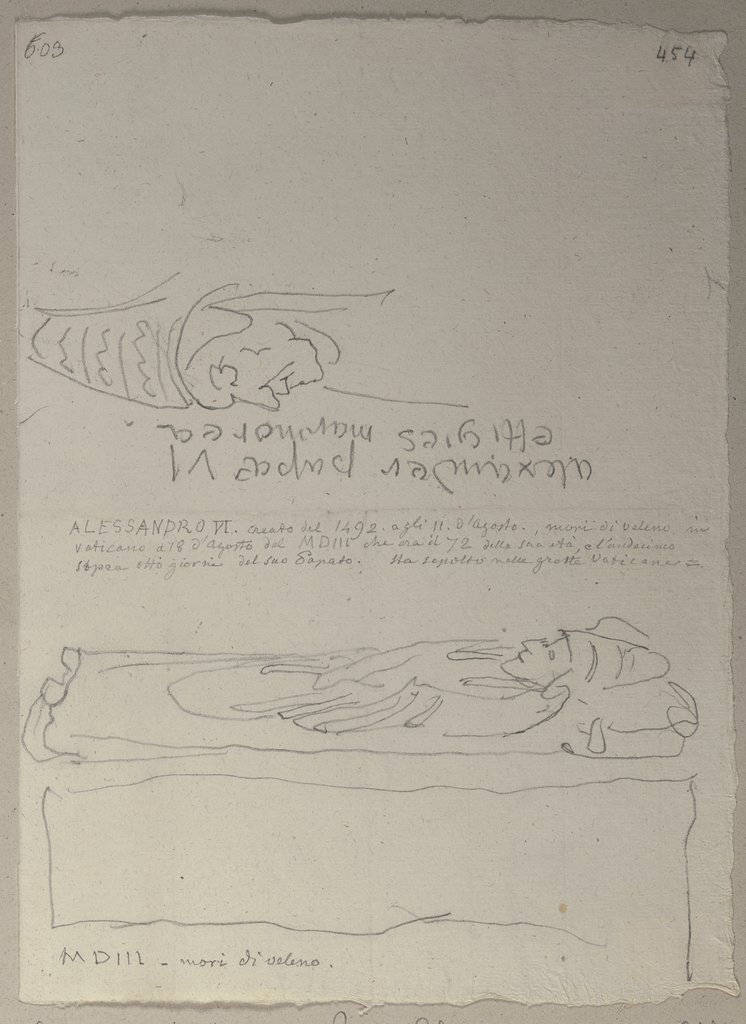 603
454
Alexander papa VI
effigies marmorea
ALESSANDRO VI. creato del 1492. agli 11. d'Agosto., mori di veleno in
vaticano a 18 d'Agosto del MDIII che era il 72 della sua età, e l'undecimo
sopra otto giorni del suo Papato. Sta sepolto nelle grotte Vaticane =
MDIII - mori di veleno.